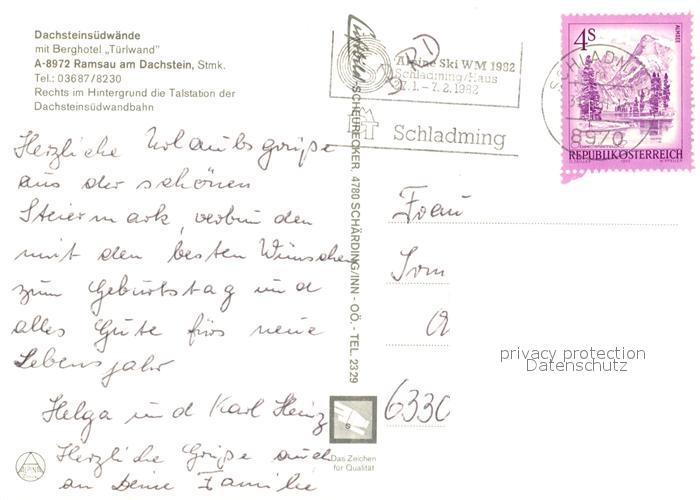 Dachsteinsüdwände
mit Berghotel „Türlwand"
A-8972 Ramsau am Dachstein, Stmk.
Tel.: 03687/8230
Rechts im Hintergrund die Talstation der
Dachsteinsüdwandbahn
Herzliche Urlaubsgrüße
aus der schönen
Steiermark, verbunden
mit den besten Wünschen
zum Geburtstag und
alles Gute fürs neue
Lebensjahr
Helga und Karl Heinz
Herzliche Grüße auch
an Deine Familie
ALPINA
SCHEURECKER, 4780 SCHÄRDING/INN - OÖ. - TEL. 2329
Das Zeichen
für Qualität
Alpine Ski WM 1982
Schladming/Haus
7. 2. 1982
Schladming
SCHLADMING
8970
4S
ALMSEE
REPUBLIK ÖSTERREICH
Frau
6330
privacy protection
Datenschutz